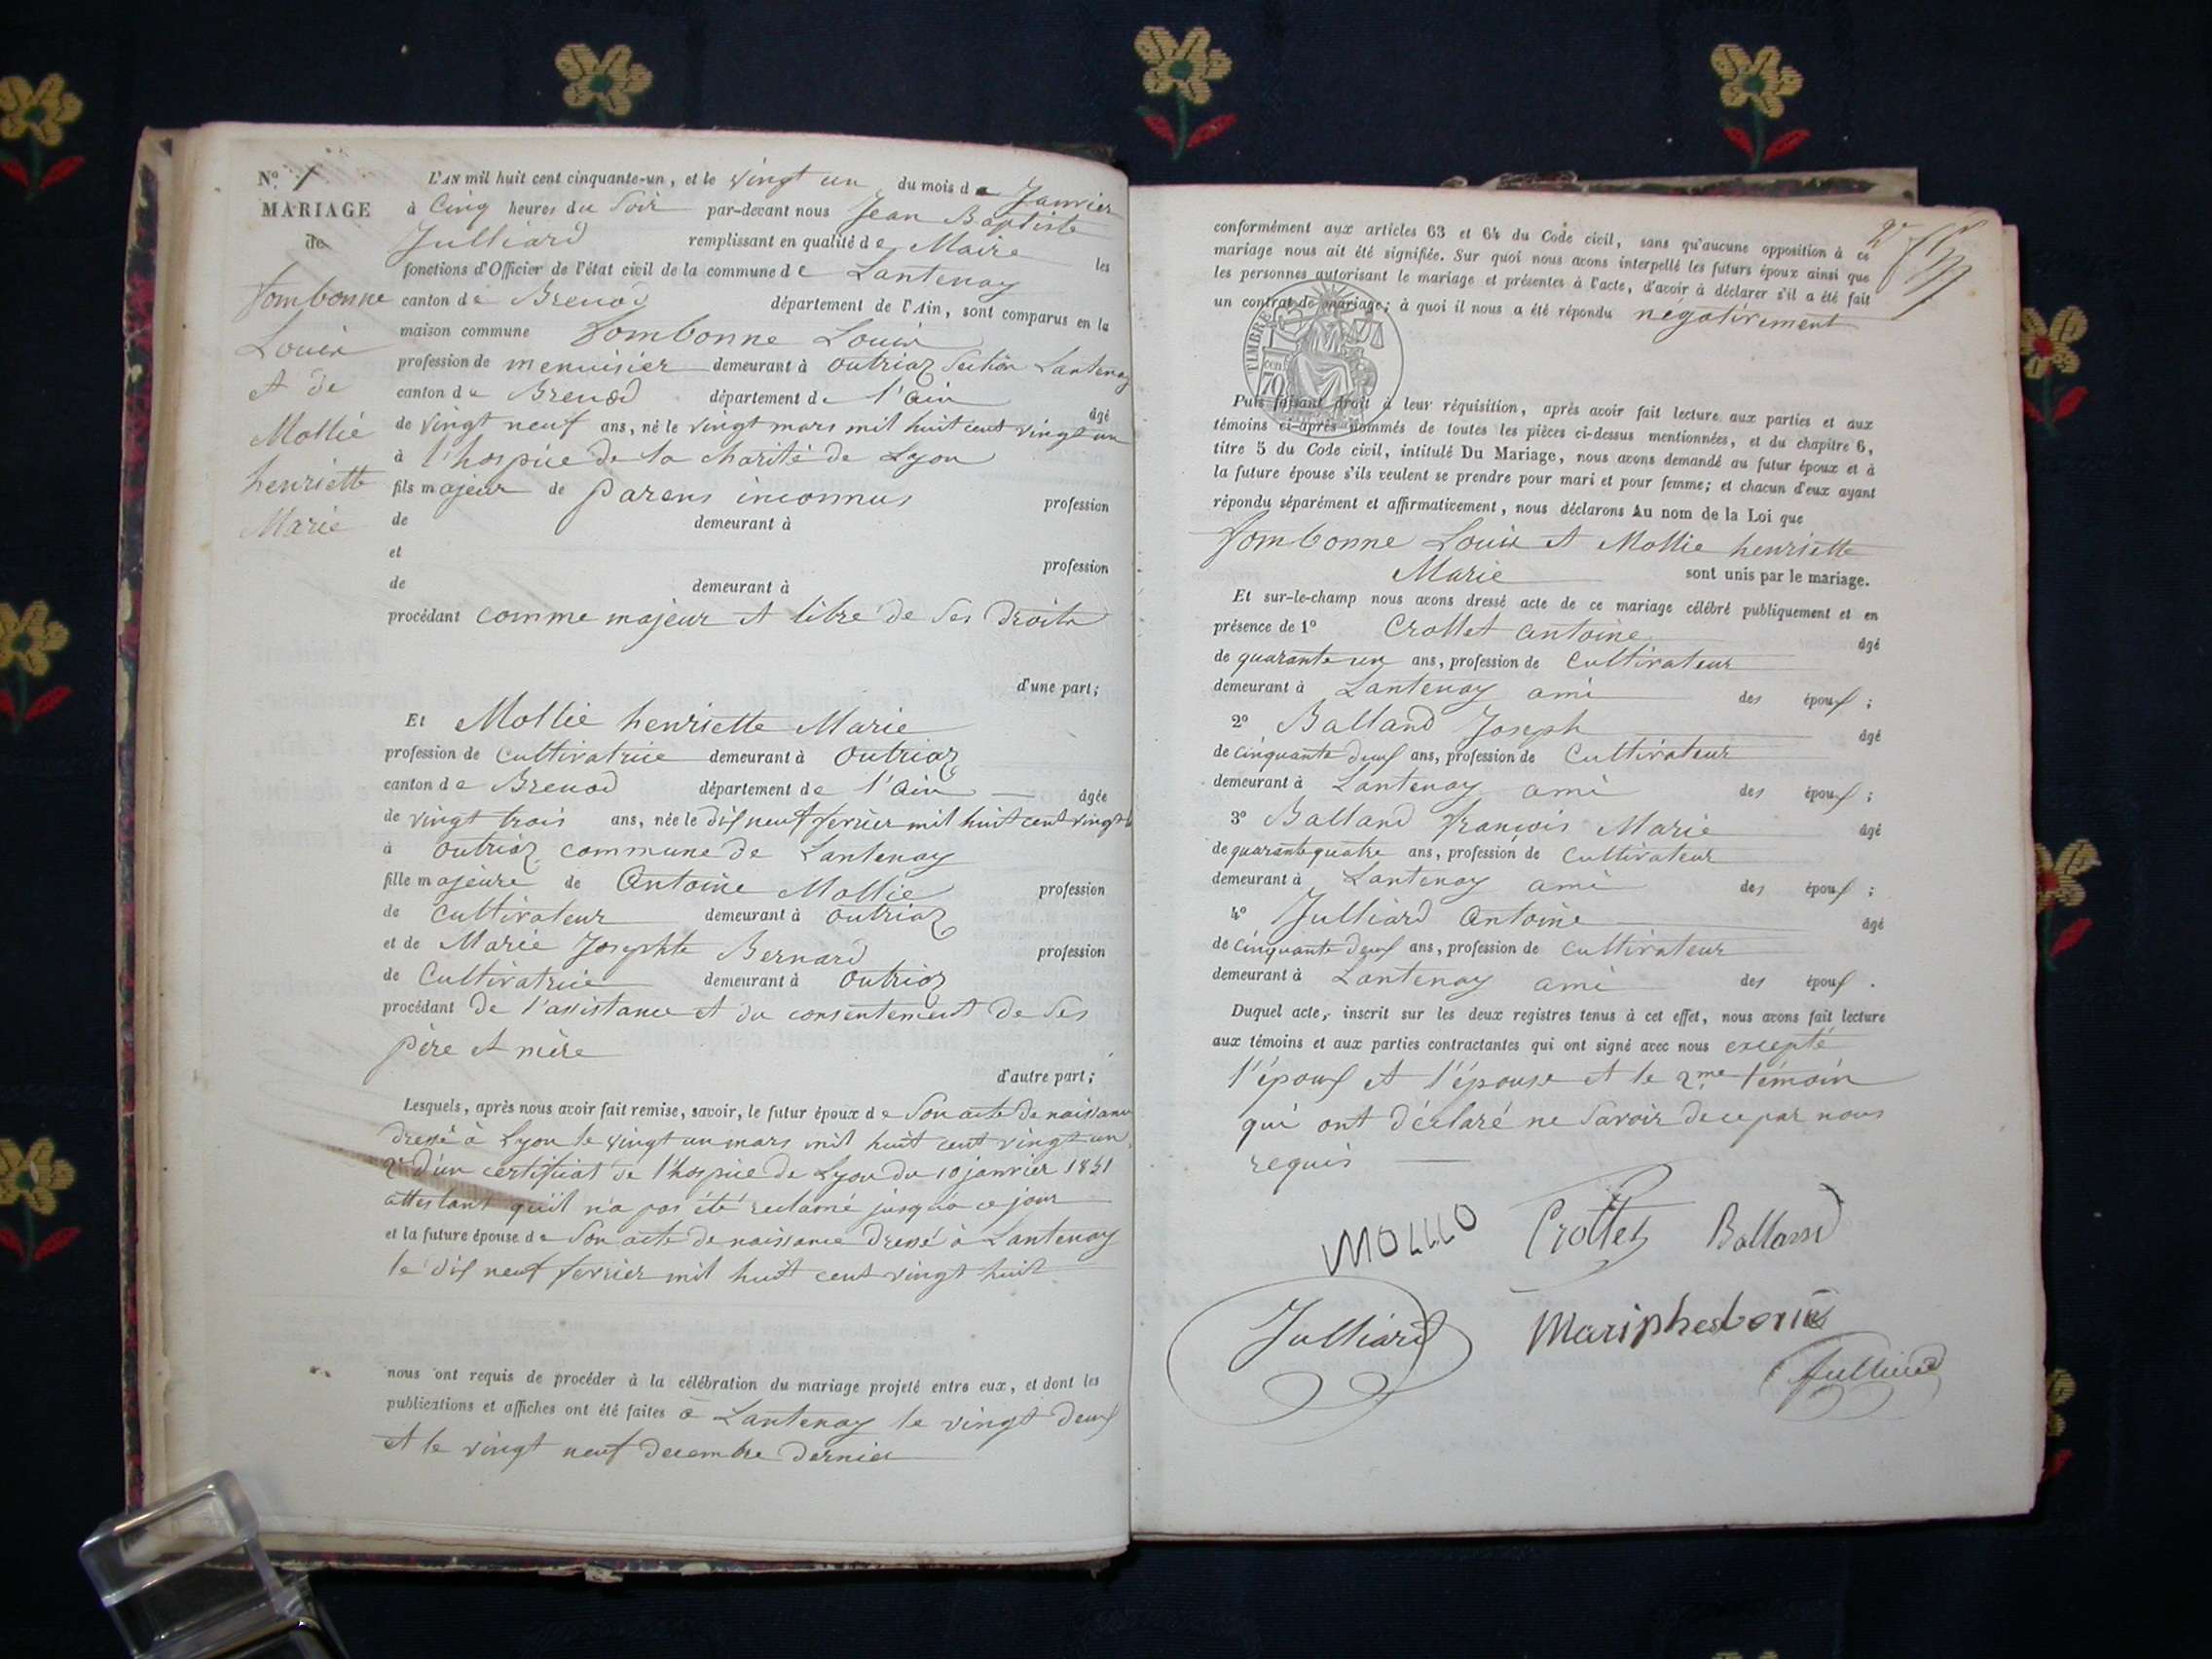 N.° 1
MARIAGE
de
Tombonne
Louis
et de
Mollié
henriette
Marie
L'AN mil huit cent cinquante-un, et le vingt un du mois de Janvier
à Cinq heures du Soir par-devant nous Jean Baptiste
Julliard remplissant en qualité de Maire les
fonctions d'Officier de l'état civil de la commune de Lantenay
canton de Brenod département de l'Ain, sont comparus en la
maison commune Tombonne Louis
profession de menuisier demeurant à Outriaz Section Lantenay
canton de Brenod département de l'Ain âgé
de vingt neuf ans, né le vingt mars mil huit cent vingt un
à l'hospice de la charité de Lyon
fils majeur de parens inconnus profession
de demeurant à
et profession
de demeurant à
procédant comme majeur et libre de ses droits
d'une part;
Et Mollie henriette Marie
profession de Cultivatrice demeurant à Outriaz
canton de Brenod département de l'Ain âgée
de vingt trois ans, née le dix neuf fevrier mil huit cent vingt
à Outriaz commune de Lantenay
fille majeure de Antoine Mollie profession
de Cultivateur demeurant à Outriaz
et de Marie Josephte Bernard profession
de Cultivatrice demeurant à Outriaz
procédant de l'assistance et du consentement de Ses
père et mère
d'autre part;
Lesquels, après nous avoir fait remise, savoir, le futur époux de Son acte de naissance
dressé à Lyon le vingt un mars mil huit cent vingt un
2° d'un certificat de l'hospice de Lyon du 10 janvier 1851
attestant qu'il n'a pas été réclamé jusqu'à ce jour
et la future épouse de Son acte de naissance dressé à Lantenay
le dix neuf fevrier mil huit cent vingt huit
nous ont requis de procéder à la célébration du mariage projeté entre eux, et dont les
publications et affiches ont été faites à Lantenay le vingt deux
et le vingt neuf decembre dernier
conformément aux articles 63 et 64 du Code civil, sans qu'aucune opposition à ce
mariage nous ait été signifiée. Sur quoi nous avons interpellé les futurs époux ainsi que
les personnes autorisant le mariage et présentes à l'acte, d'avoir à déclarer s'il a été fait
un contrat de mariage; à quoi il nous a été répondu négativement
TIMBRE
70 cent
Puis faisant droit à leur réquisition, après avoir fait lecture aux parties et aux
témoins ci-après nommés de toutes les pièces ci-dessus mentionnées, et du chapitre 6,
titre 5 du Code civil, intitulé Du Mariage, nous avons demandé au futur époux et à
la future épouse s'ils veulent se prendre pour mari et pour femme; et chacun d'eux ayant
répondu séparément et affirmativement, nous déclarons Au nom de la Loi que
Tombonne Louis et Mollie henriette
Marie sont unis par le mariage.
Et sur-le-champ nous avons dressé acte de ce mariage célébré publiquement et en
présence de 1° Crollet Antoine âgé
de quarante un ans, profession de Cultivateur
demeurant à Lantenay ami des époux;
2° Balland Joseph âgé
de cinquante deux ans, profession de Cultivateur
demeurant à Lantenay ami des époux;
3° Balland françois Marie âgé
de quarante quatre ans, profession de Cultivateur
demeurant à Lantenay ami des époux;
4° Julliard Antoine âgé
de cinquante deux ans, profession de Cultivateur
demeurant à Lantenay ami des époux.
Duquel acte, inscrit sur les deux registres tenus à cet effet, nous avons fait lecture
aux témoins et aux parties contractantes qui ont signé avec nous excepté
l'époux et l'épouse et le 2me témoin
qui ont déclaré ne Savoir de ce par nous
requis
Crollet Balland
Julliard
Julliard